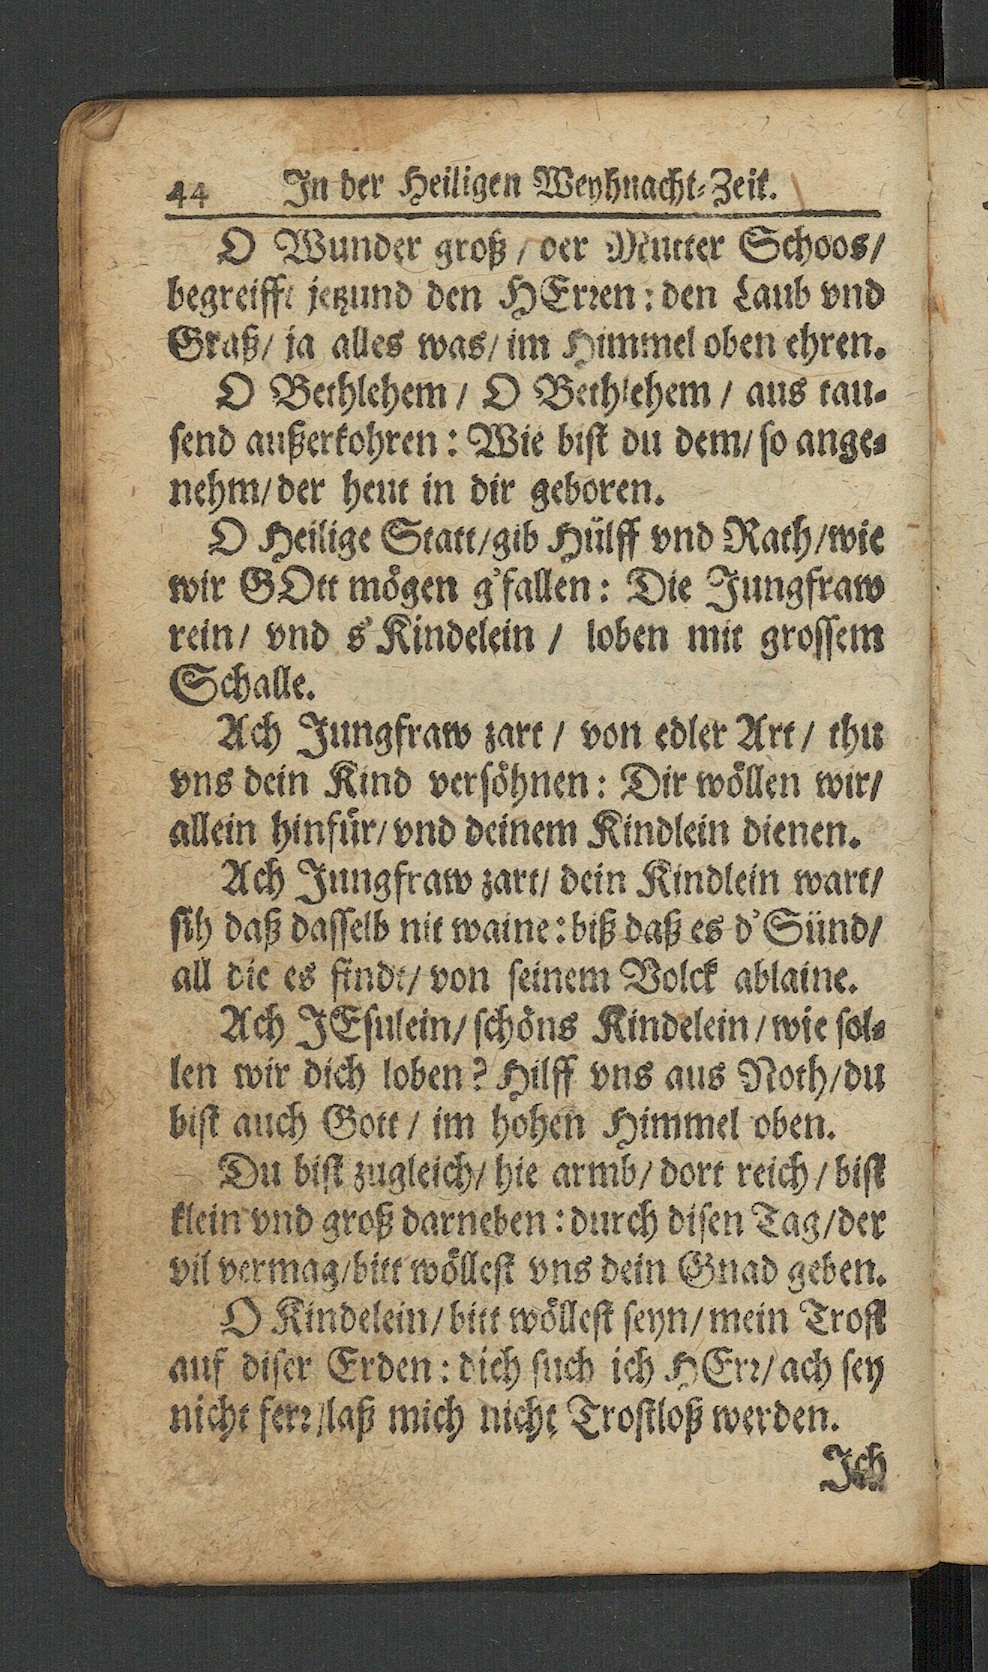 44 In der Heiligen Weyhnacht-Zeit.
O Wunder groß / der Mutter Schoos/
begreifft jetzund den HErren: den Laub vnd
Graß/ ja alles was/ im Himmel oben ehren.
O Bethlehem / O Bethlehem / aus tau-
send außerkohren: Wie bist du dem/ so ange-
nehm/ der heut in dir geboren.
O Heilige Statt/ gib Hülff vnd Rath/ wie
wir GOtt mögen g'fallen: Die Jungfraw
rein/ vnd s'Kindelein / loben mit grossem
Schalle.
Ach Jungfraw zart / von edler Art / thu
vns dein Kind versöhnen: Dir wöllen wir/
allein hinfür/ vnd deinem Kindlein dienen.
Ach Jungfraw zart/ dein Kindlein wart/
sih daß dasselb nit waine: biß daß es d'Sünd/
all die es findt/ von seinem Volck ablaine.
Ach JEsulein/ schöns Kindelein/ wie sol-
len wir dich loben? Hilff vns aus Noth/ du
bist auch Gott / im hohen Himmel oben.
Du bist zugleich/ hie armb/ dort reich / bist
klein vnd groß darneben: durch disen Tag/ der
vil vermag/ bitt wöllest vns dein Gnad geben.
O Kindelein/ bitt wöllest seyn/ mein Trost
auf diser Erden: dich such ich HErr/ ach sey
nicht ferr/ laß mich nicht Trostloß werden.
Ich